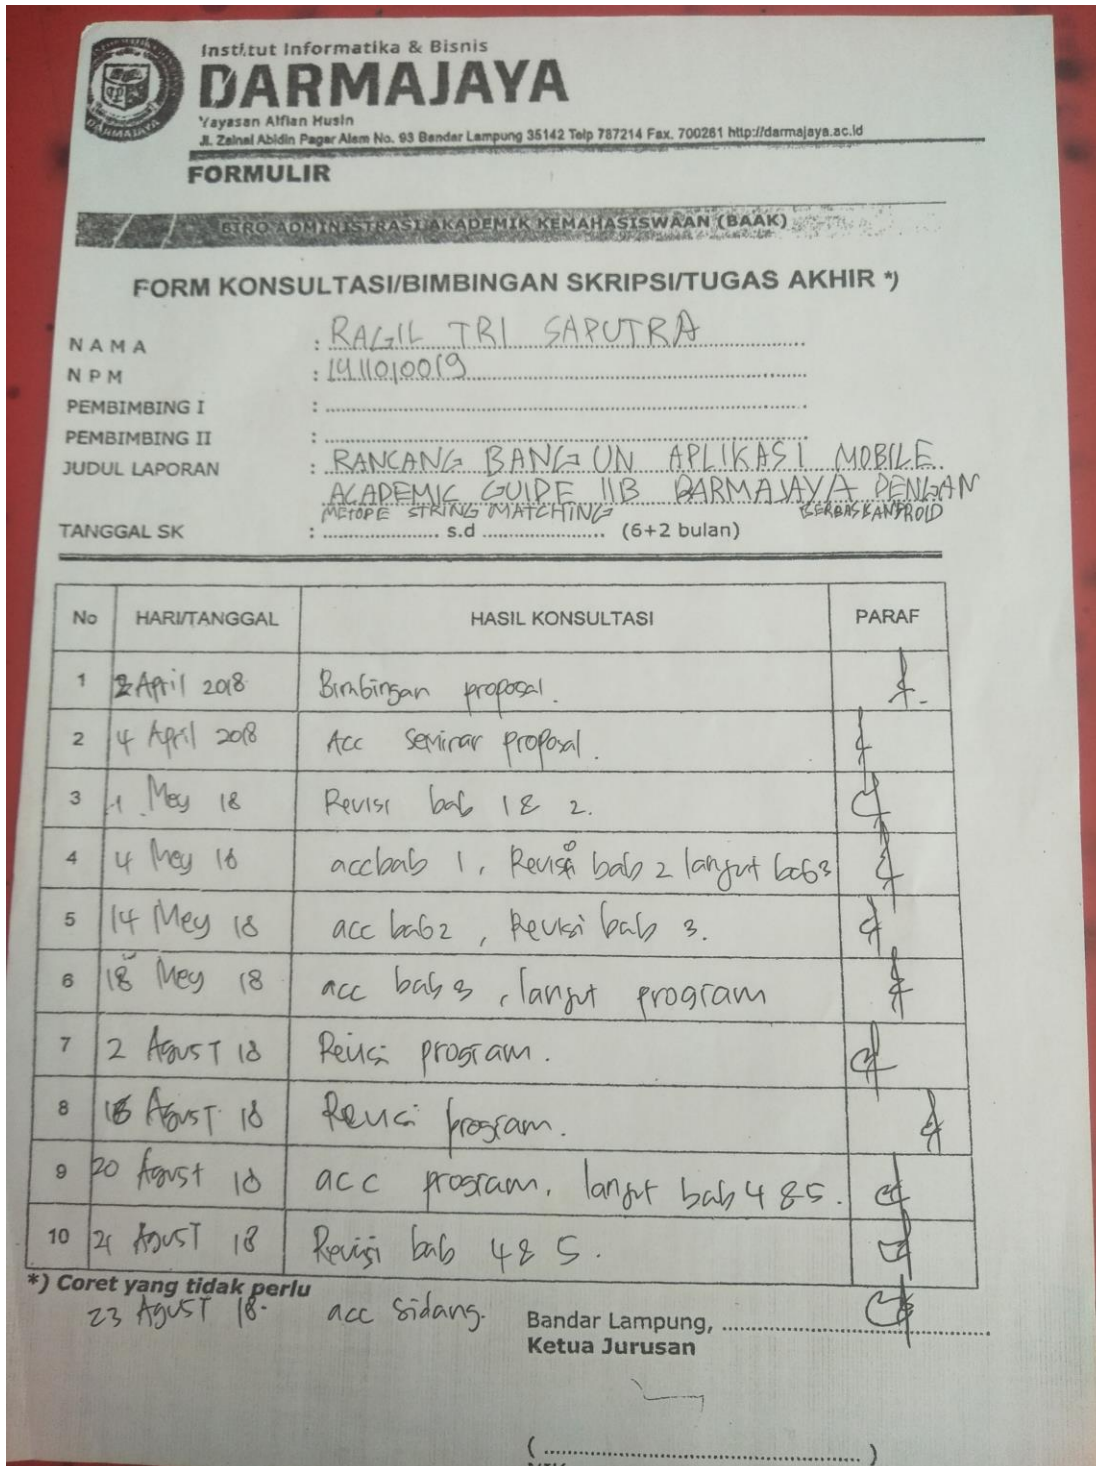 Institut Informatika & Bisnis
DARMAJAYA
Yayasan Alfian Husin
Jl. Zainal Abidin Pagar Alam No. 93 Bandar Lampung 35142 Telp 787214 Fax. 700261 http://darmajaya.ac.id
FORMULIR
BIRO ADMINISTRASI AKADEMIK KEMAHASISWAAN (BAAK)
FORM KONSULTASI/BIMBINGAN SKRIPSI/TUGAS AKHIR *)
NAMA : RAGIL TRI SAPUTRA
NPM : 1411010019
PEMBIMBING I :
PEMBIMBING II :
JUDUL LAPORAN : RANCANG BANGUN APLIKASI MOBILE
ACADEMIC GUIDE IIB DARMAJAYA DENGAN
METODE STRING MATCHING BERBASIS ANDROID
TANGGAL SK : .................... s.d .................... (6+2 bulan)
No HARI/TANGGAL HASIL KONSULTASI PARAF
1 2 April 2018 Bimbingan proposal.
2 4 April 2018 Acc seminar proposal.
3 1 Mey 18 Revisi bab 1 & 2.
4 4 Mey 18 acc bab 1, Revisi bab 2 lanjut bab 3
5 14 Mey 18 acc bab 2, Revisi bab 3.
6 18 Mey 18 acc bab 3, lanjut program
7 2 Agust 18 Revisi program.
8 Agust 18 Revisi program.
9 20 Agust 18 acc program, lanjut bab 4 & 5.
10 21 Agust 18 Revisi bab 4 & 5.
*) Coret yang tidak perlu
23 Agust 18. acc sidang.
Bandar Lampung, ....................
Ketua Jurusan
( .................... )